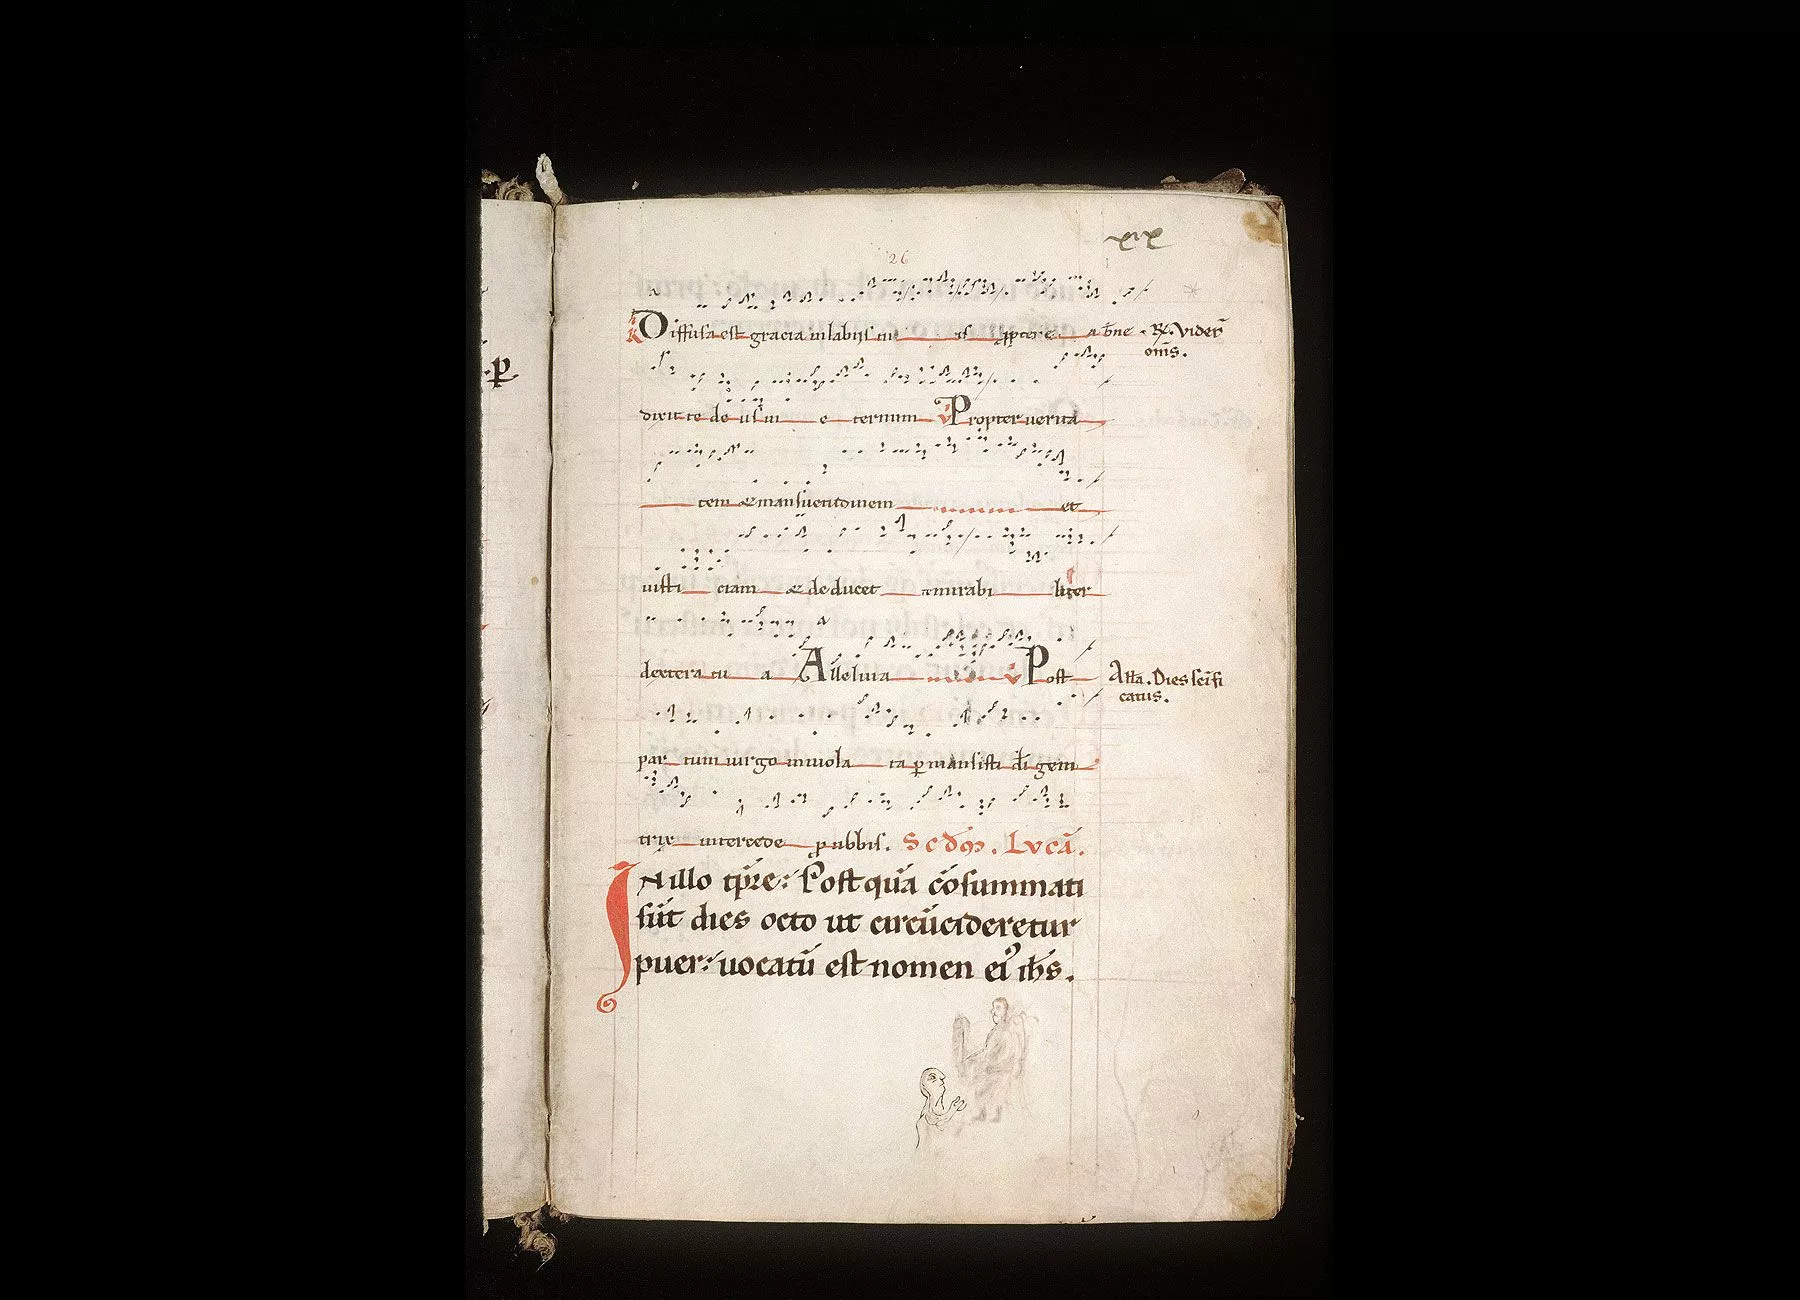 xix
26
Diffusa est gracia in labiis tu is ꝓpterea bñe R̃. Viderт̃
om̃s.
dixit te deus in e ternum V Propter verita
tem & mansuetudinem et
iusti ciam & deducet te mirabi liter
dextera tu a Alleluia V Post Allã. Dies sc̃ifi
catus.
par tum uirgo inuiola ta ꝑmansisti di genі
trix intercede ꝓ nobis. Scđm. Lvcã.
IN illo tp̃re: Postquã cõsummati
sũt dies octo ut circũcideretur
puer: uocatũ est nomen eiꝰ ih̃s.